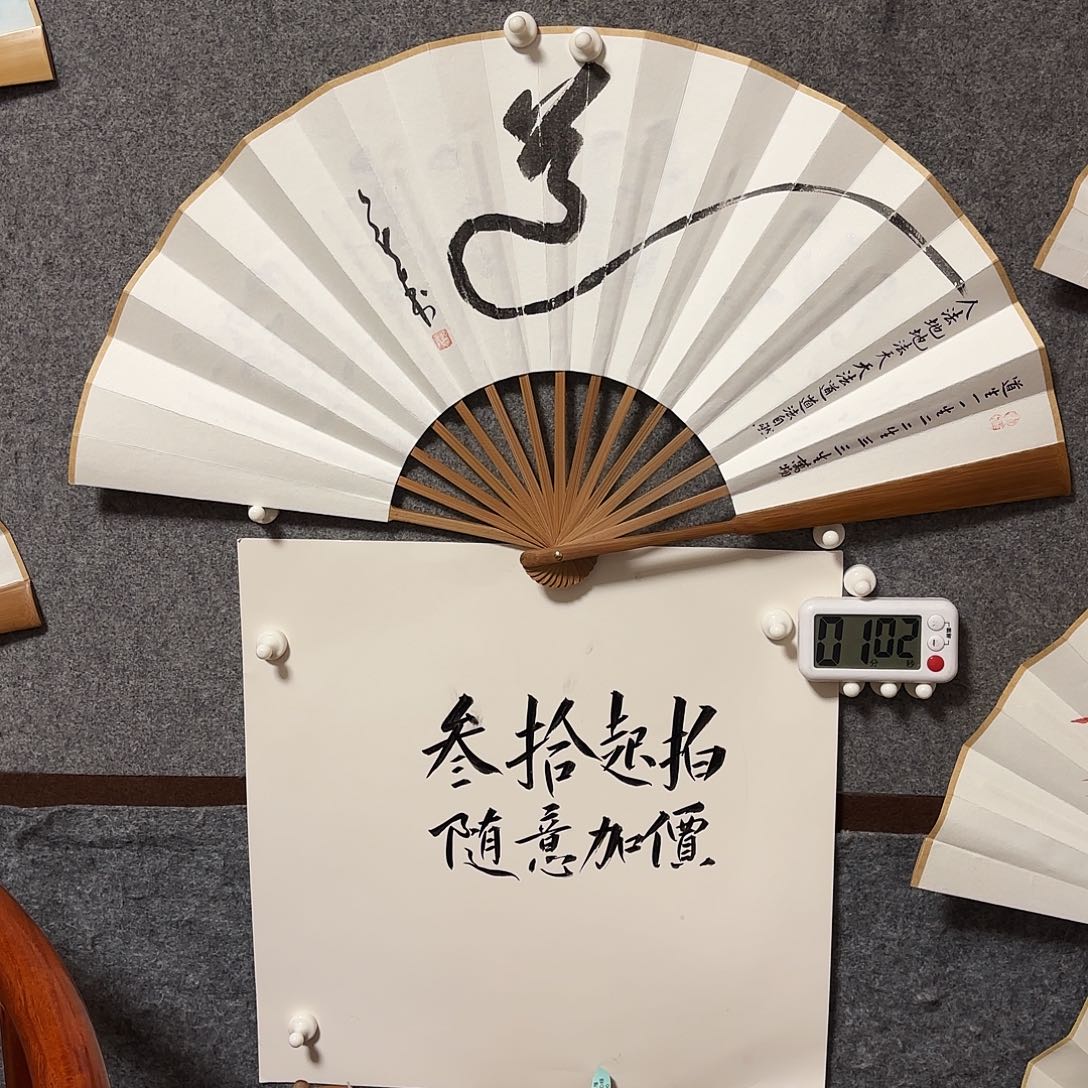 道
道生一一生二二生三三生萬物
人法地地法天天法道道法自然
叁拾起拍
隨意加價
01 02
分 秒